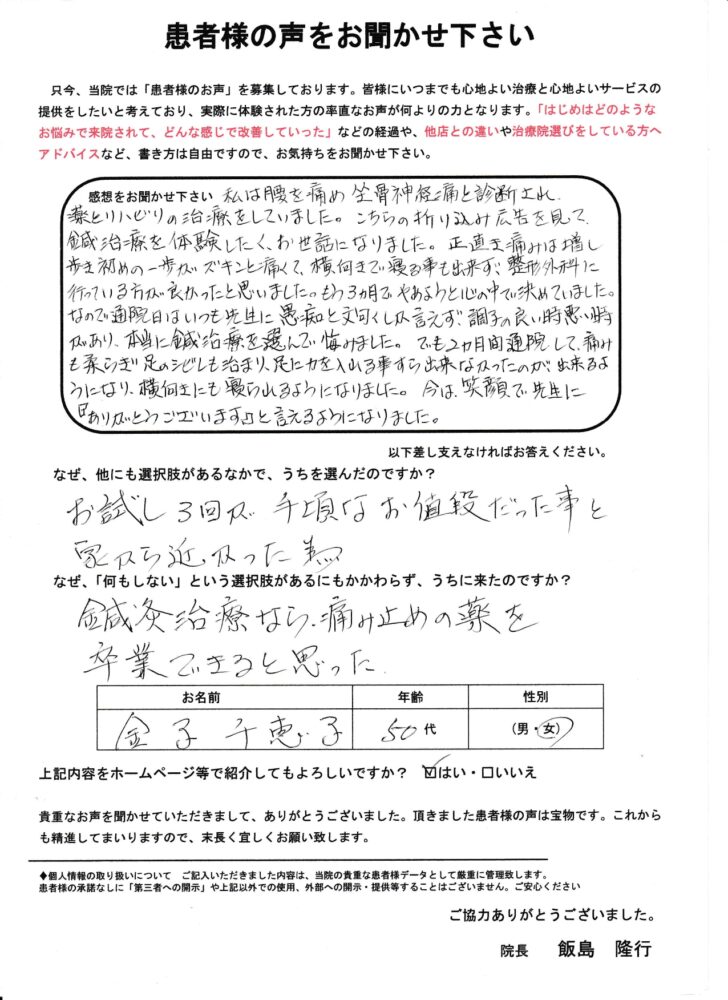 患者様の声をお聞かせ下さい
只今、当院では「患者様のお声」を募集しております。皆様にいつまでも心地よい治療と心地よいサービスの
提供をしたいと考えており、実際に体験された方の率直なお声が何よりの力となります。「はじめはどのような
お悩みで来院されて、どんな感じで改善していった」などの経過や、他店との違いや治療院選びをしている方へ
アドバイスなど、書き方は自由ですので、お気持ちをお聞かせ下さい。
感想をお聞かせ下さい 私は腰を痛め坐骨神経痛と診断され、
薬とリハビリの治療をしていました。こちらの折り込み広告を見て、
鍼治療を体験したく、お世話になりました。正直、痛みは増し
歩き初めの一歩がズキンと痛くて、横向きで寝る事も出来ず、整形外科に
行っている方が良かったと思いました。もう3ヵ月でやめようと心の中で決めていました。
なので通院日はいつも先生に愚痴と文句しか言えず、調子の良い時悪い時
があり、本当に鍼治療を選んで悔みました。でも2ヵ月間通院して、痛み
も柔らぎ足のシビレも治まり、足に力を入れる事すら出来なかったのが出来るよ
うになり、横向きにも寝られるようになりました。今は、笑顔で先生に
『ありがとうございます』と言えるようになりました。
以下差し支えなければお答えください。
なぜ、他にも選択肢があるなかで、うちを選んだのですか？
お試し3回が手頃なお値段だった事と
家から近かった為
なぜ、「何もしない」という選択肢があるにもかかわらず、うちに来たのですか？
鍼灸治療なら、痛み止めの薬を
卒業できると思った
お名前 年齢 性別
金子 千恵子 50代 (男・女)
上記内容をホームページ等で紹介してもよろしいですか？ ☑はい・□いいえ
貴重なお声を聞かせていただきまして、ありがとうございました。頂きました患者様の声は宝物です。これから
も精進してまいりますので、末長く宜しくお願い致します。
◆個人情報の取り扱いについて ご記入いただきました内容は、当院の貴重な患者様データとして厳重に管理致します。
患者様の承諾なしに「第三者への開示」や上記以外での使用、外部への開示・提供等することはございません。ご安心ください
ご協力ありがとうございました。
院長 飯島 隆行